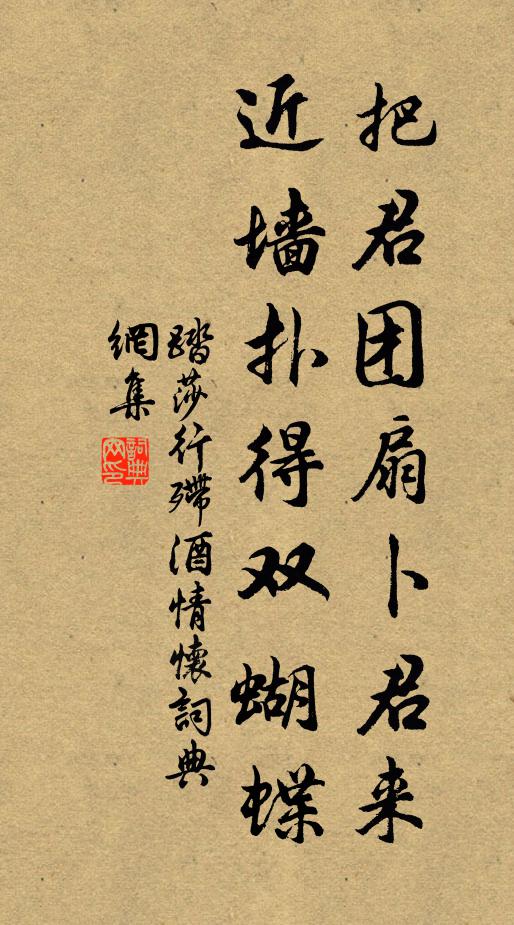 把君团扇卜君来
近墙扑得双蝴蝶
踏莎行殢酒情懷詞典
網集
詞典
网印